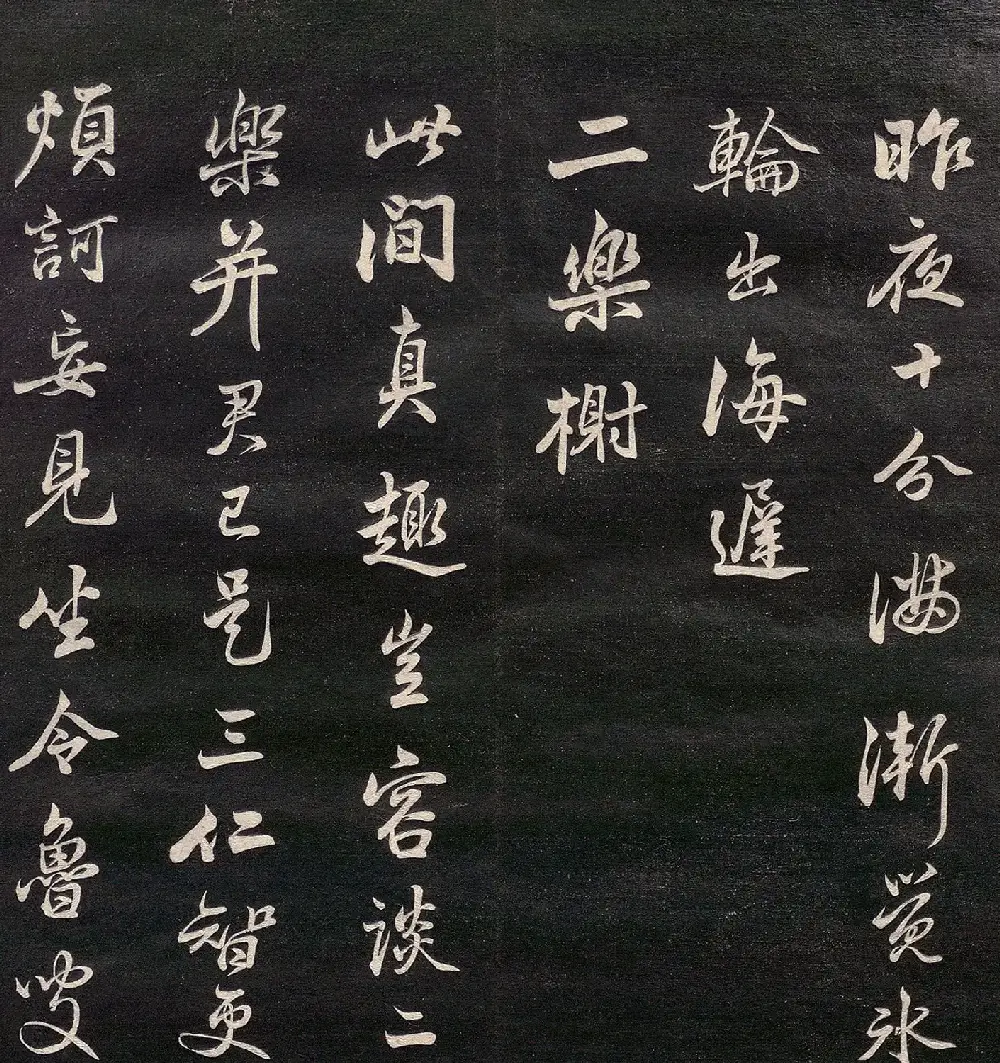 昨夜十分满渐觉冰
輪出海遲
二樂榭
此間真趣豈容談二
樂并君已是三仁智更
煩訶妄見坐令魯叟